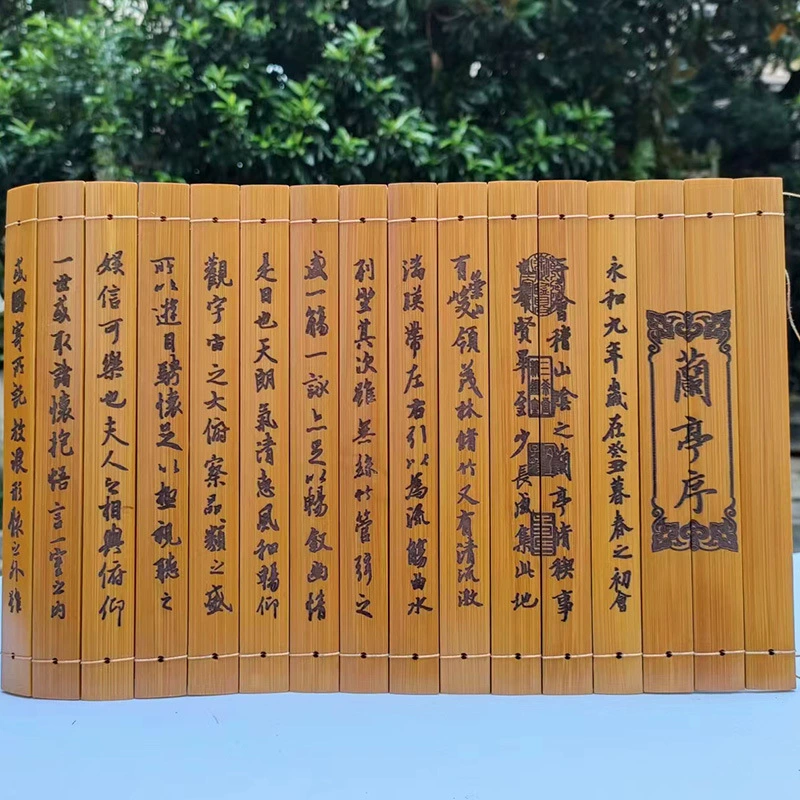 蘭亭序
永和九年歲在癸丑暮春之初會
會稽山陰之蘭亭脩稧事
群賢畢至少長咸集此地
有崇山峻領茂林脩竹又有清流激
湍暎帶左右引以為流觴曲水
列坐其次雖無絲竹管弦之
盛一觴一詠亦足以暢敘幽情
是日也天朗氣清惠風和暢仰
觀宇宙之大俯察品類之盛
所以遊目騁懷足以極視聽之
娛信可樂也夫人之相與俯仰
一世或取諸懷抱悟言一室之內
或因寄所託放浪形骸之外雖